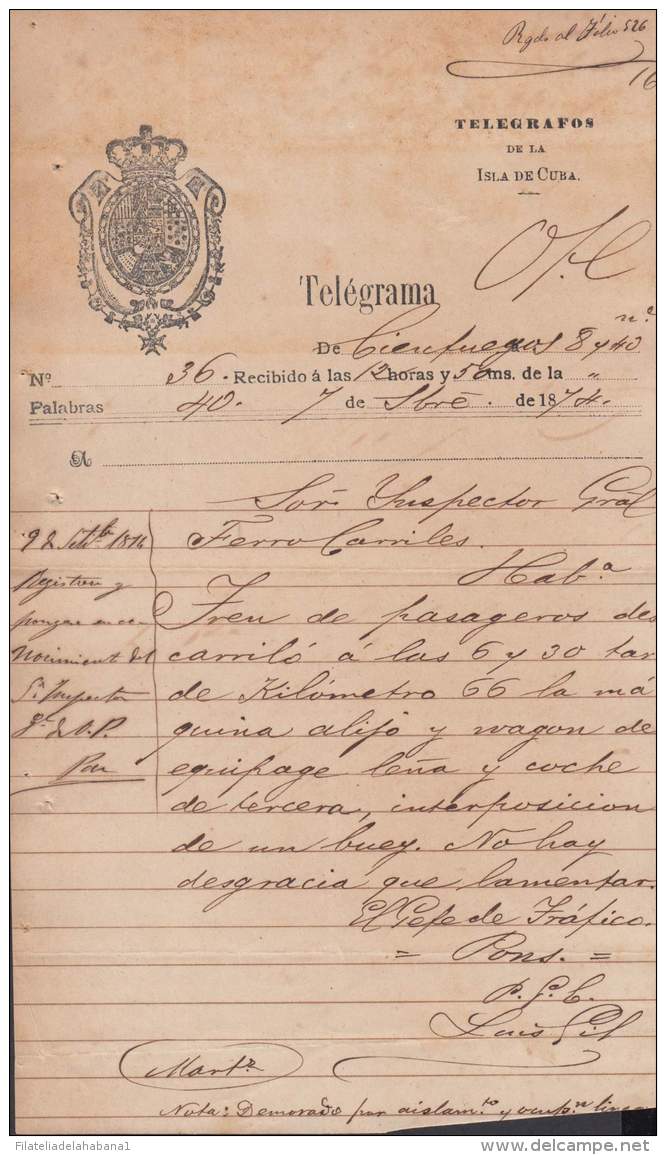 Rgdo al Folio 526
16
TELEGRAFOS
DE LA
ISLA DE CUBA.
Telégrama
De Cienfuegos 8 y 40
Nº 36. Recibido á las 12 horas y 50 ms. de la "
Palabras 40. 7 de Sbre. de 1874.
A
Sor. Ynspector Gral
Ferro Carriles.
Haba
Tren de pasageros des
carriló á las 6 y 30 tar
de Kilómetro 66 la má
quina alijo y wagon de
equipage leña y coche
de tercera, interposicion
de un buey. No hay
desgracia que lamentar.
El Gefe de Tráfico.
= Pons. =
Luis Gil
Registrese y
pongase en co
nocimient del
Sr. Inspector
Martz
Nota: Demorado por aislamto y ocupn linea
Filateliadelahabana1
delcampe.net